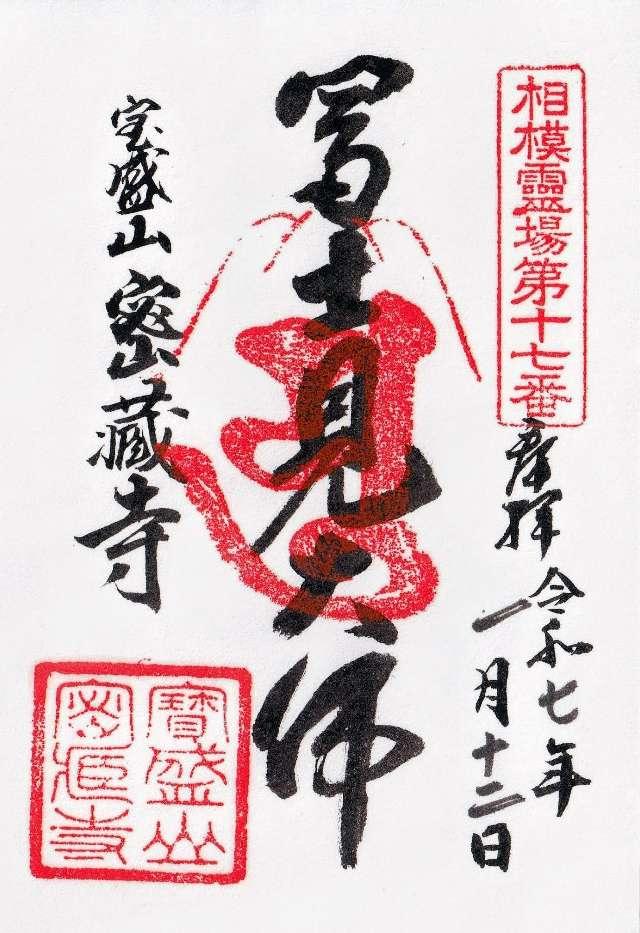 相模靈場第十七番
奉拝 令和七年
一月十二日
冨士見大師
宝盛山 密蔵寺
寶盛山
密蔵寺